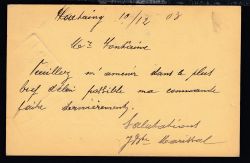 10/12 08
Mr Fontaine
Veuillez m'amener dans le plus
bref délai possible ma commande
faite dernièrement.
Salutations